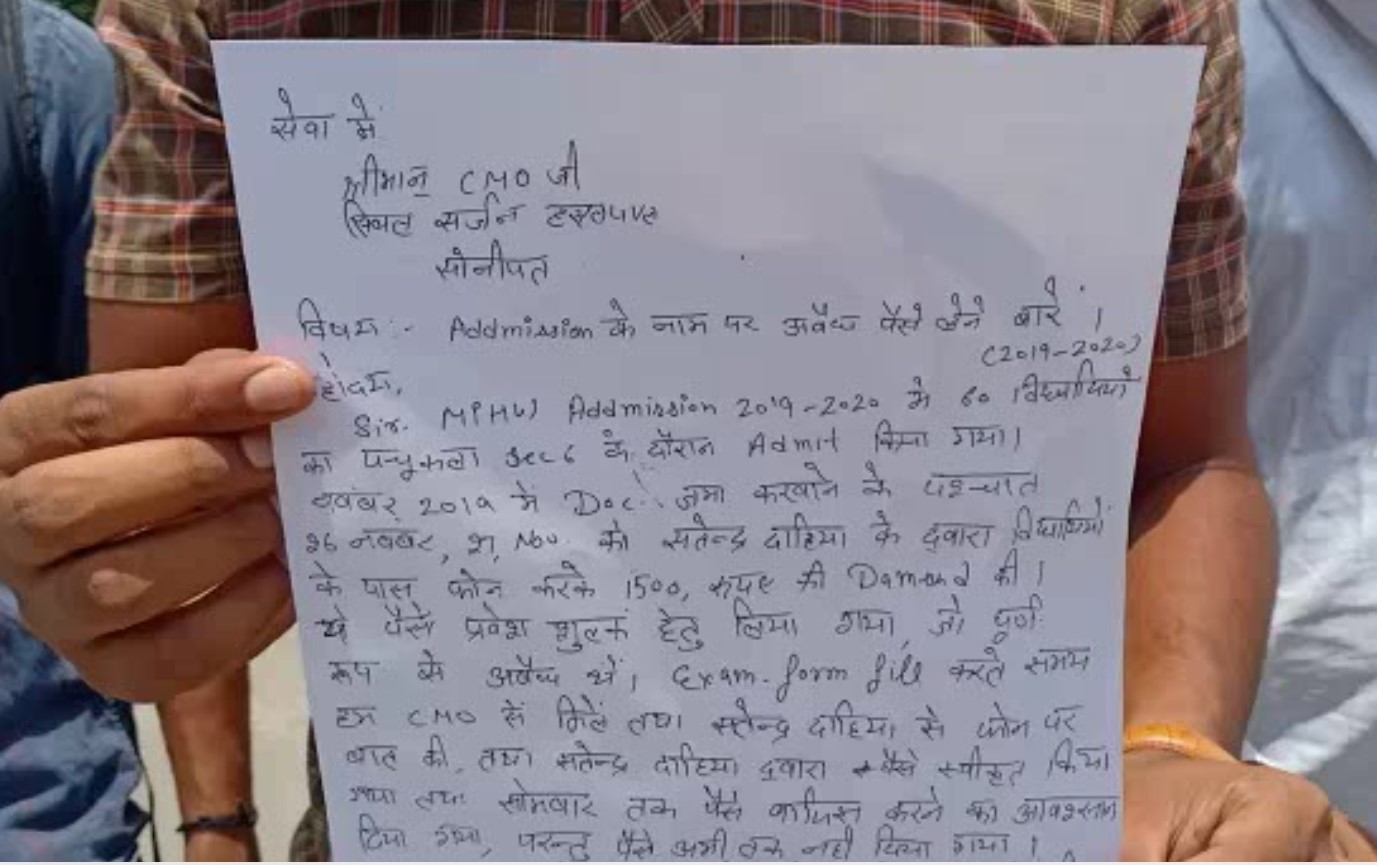 सेवा में
श्रीमान् CMO जी
सिवल सर्जन हस्पताल
सोनीपत
विषय :- Addmission के नाम पर अवैध पैसे लेने बारे ।
(2019-2020)
होदय,
Sir. MPHW Addmission 2019-2020 मे 60 विद्यार्थियो
का पन्चूकला Sec 6 के दौरान Admit किया गया।
नवंबर 2019 में Doc. जमा करवाने के पश्चात
26 नवंबर, Nov. को सतेन्द्र दाहिया के द्वारा विद्यार्थियों
के पास फोन करके 1500, रुपए की Damand की ।
ये पैसे प्रवेश शुल्क हेतु लिया गया, जो पूर्ण
रूप से अवैध थे। Exam. form fill करते समय
हम CMO से मिलें तथा सतेन्द्र दाहिया से फोन पर
बात की, तथा सतेन्द्र दाहिया द्वारा पैसे स्वीकृत किया
गया तथा सोमवार तक पैसे वापिस करने का आवश्स्तान
दिया गया, परन्तु पैसे अभी तक नही दिया गया ।